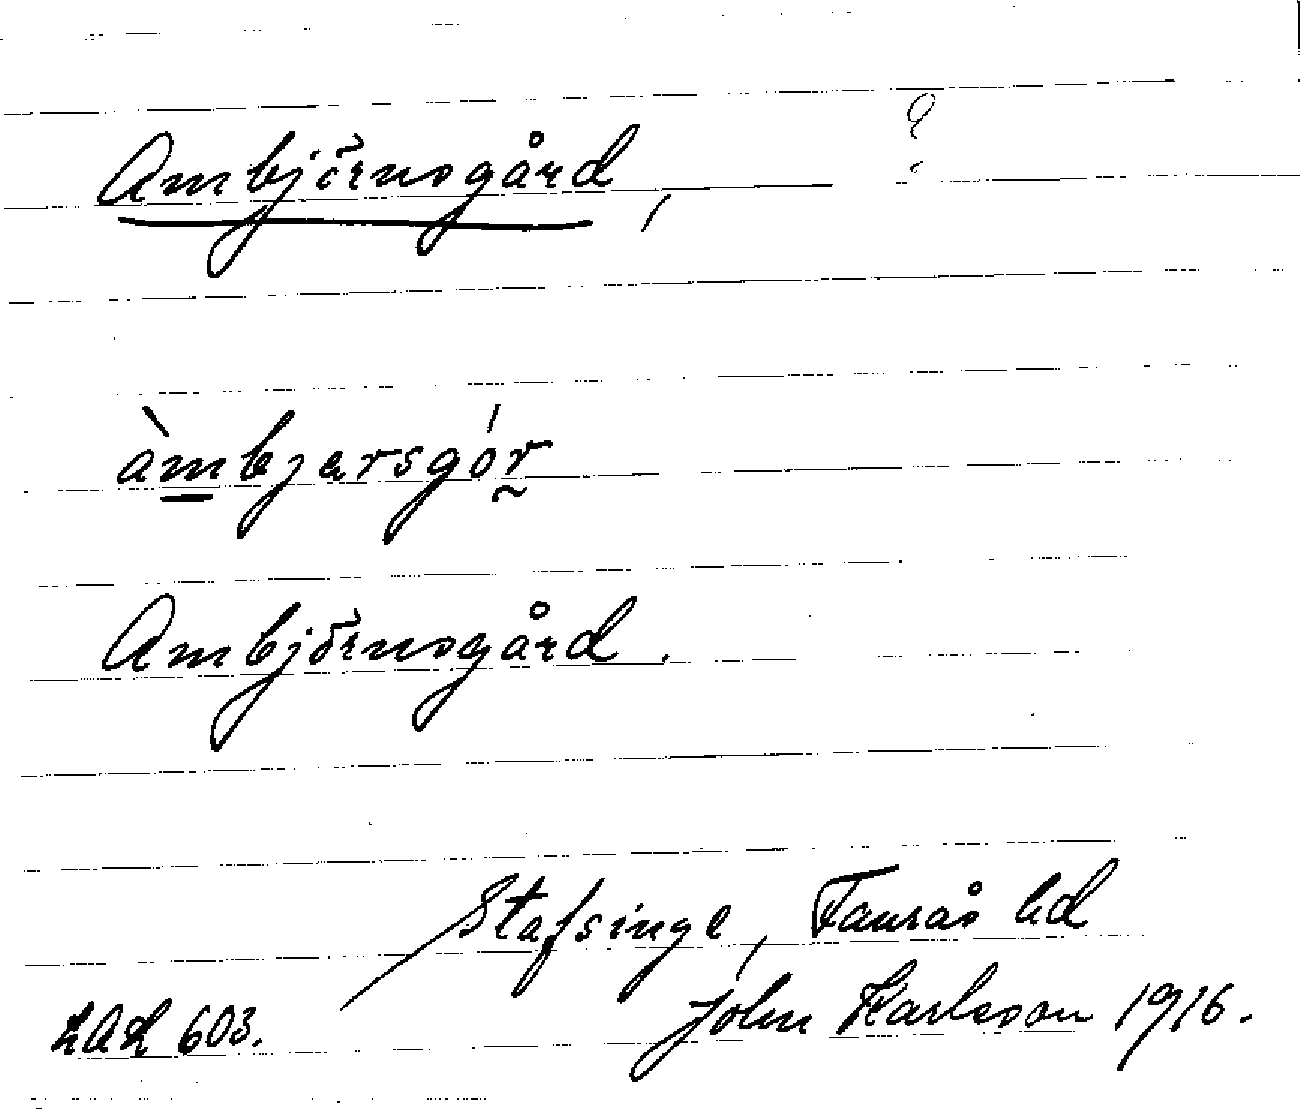 Ambjörnsgård, ?
àmbjersgór
Ambjörnsgård.
Stafsinge, Faurås hd
LAL 603. John Karlsson 1916.